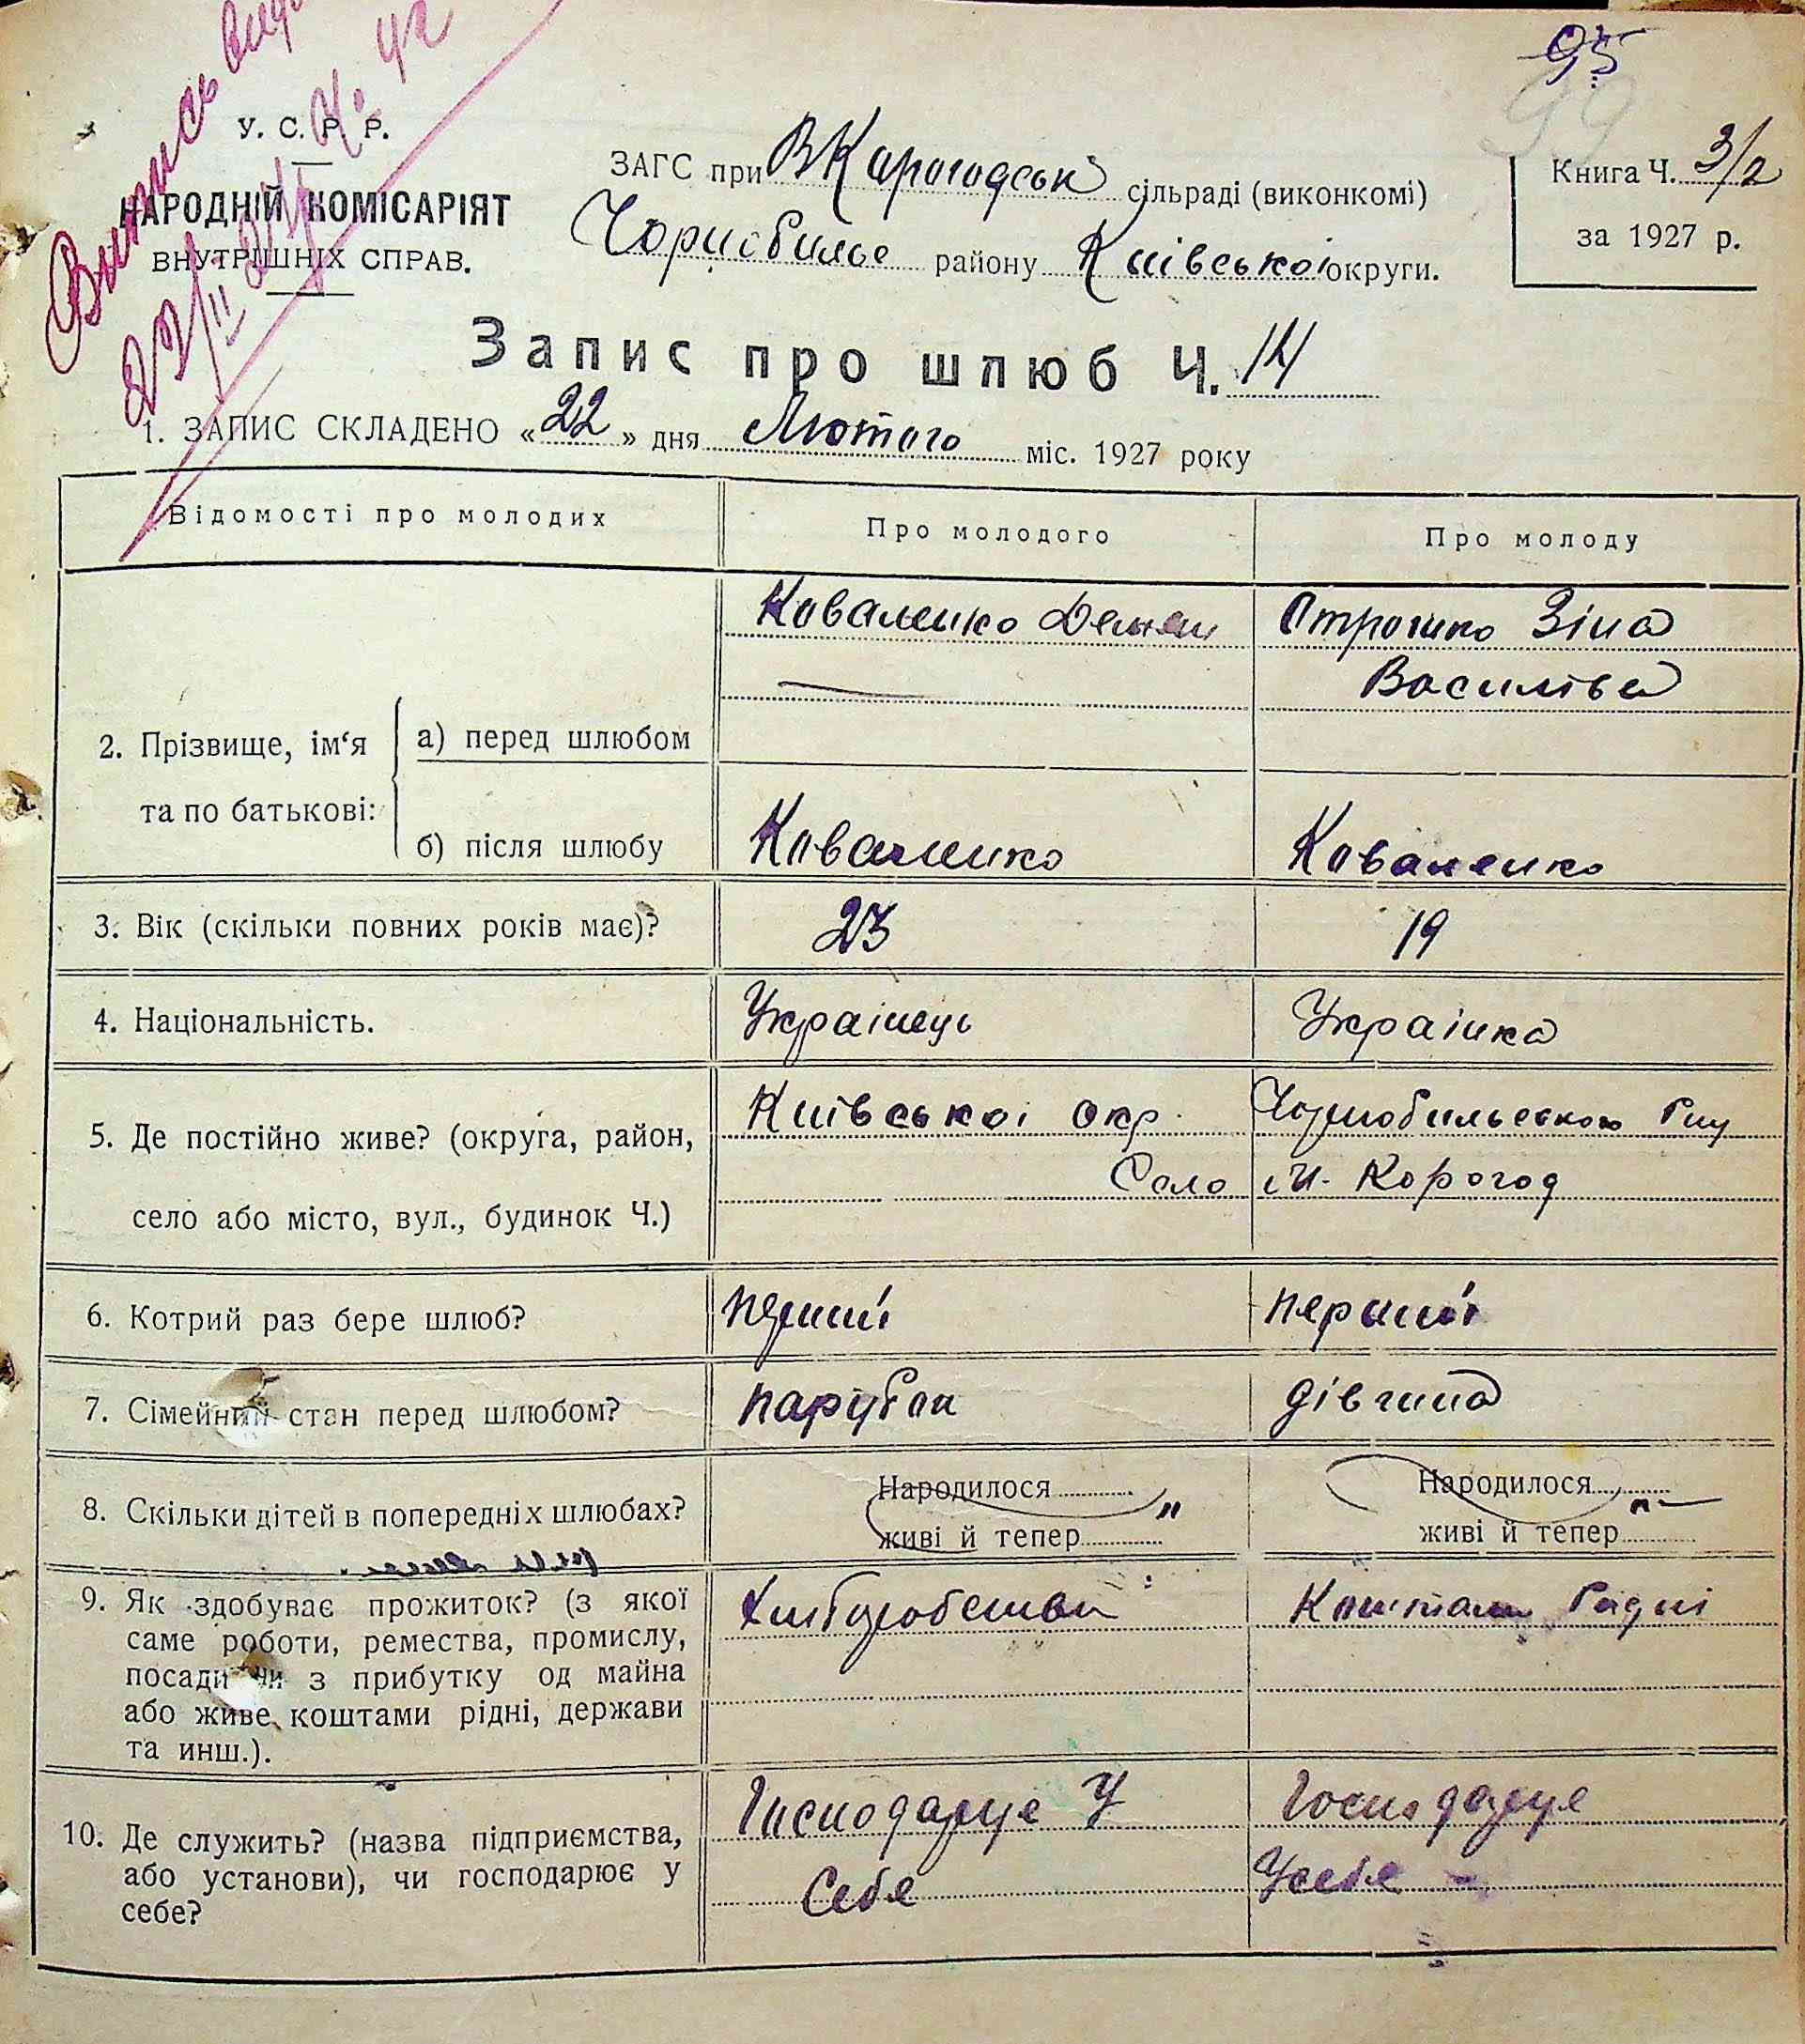 95
99
Випись
У. С. Р. Р.
НАРОДНІЙ КОМІСАРІЯТ
ВНУТРІШНІХ СПРАВ.
ЗАГС при ВКарогодськ сільраді (виконкомі)
Чорнобильс району Київської округи.
Книга Ч. 3/2
за 1927 р.
Запис про шлюб Ч. 14
1. ЗАПИС СКЛАДЕНО «22» дня Лютого міс. 1927 року
Відомості про молодих
Про молодого
Про молоду
2. Прізвище, ім‘я
та по батькові:
а) перед шлюбом
Коваленко
Зіна
Василівна
б) після шлюбу
Коваленко
Коваленко
3. Вік (скільки повних років має)?
23
19
4. Національність.
Украінець
Украінка
5. Де постійно живе? (округа, район,
село або місто, вул., будинок Ч.)
Київськоі окр. Чорнобильського
Село М. Корогод
6. Котрий раз бере шлюб?
перший
перший
7. Сімейний стан перед шлюбом?
парубок
дівчина
8. Скільки дітей в попередніх шлюбах?
Народилося
живі й тепер "
Народилося
живі й тепер "
9. Як здобуває прожиток? (з якої
саме роботи, ремества, промислу,
посади чи з прибутку од майна
або живе коштами рідні, держави
та инш.).
Коштами Рідні
10. Де служить? (назва підприємства,
або установи), чи господарює у
себе?
Господарує У
Себе
Господарує
Усебе